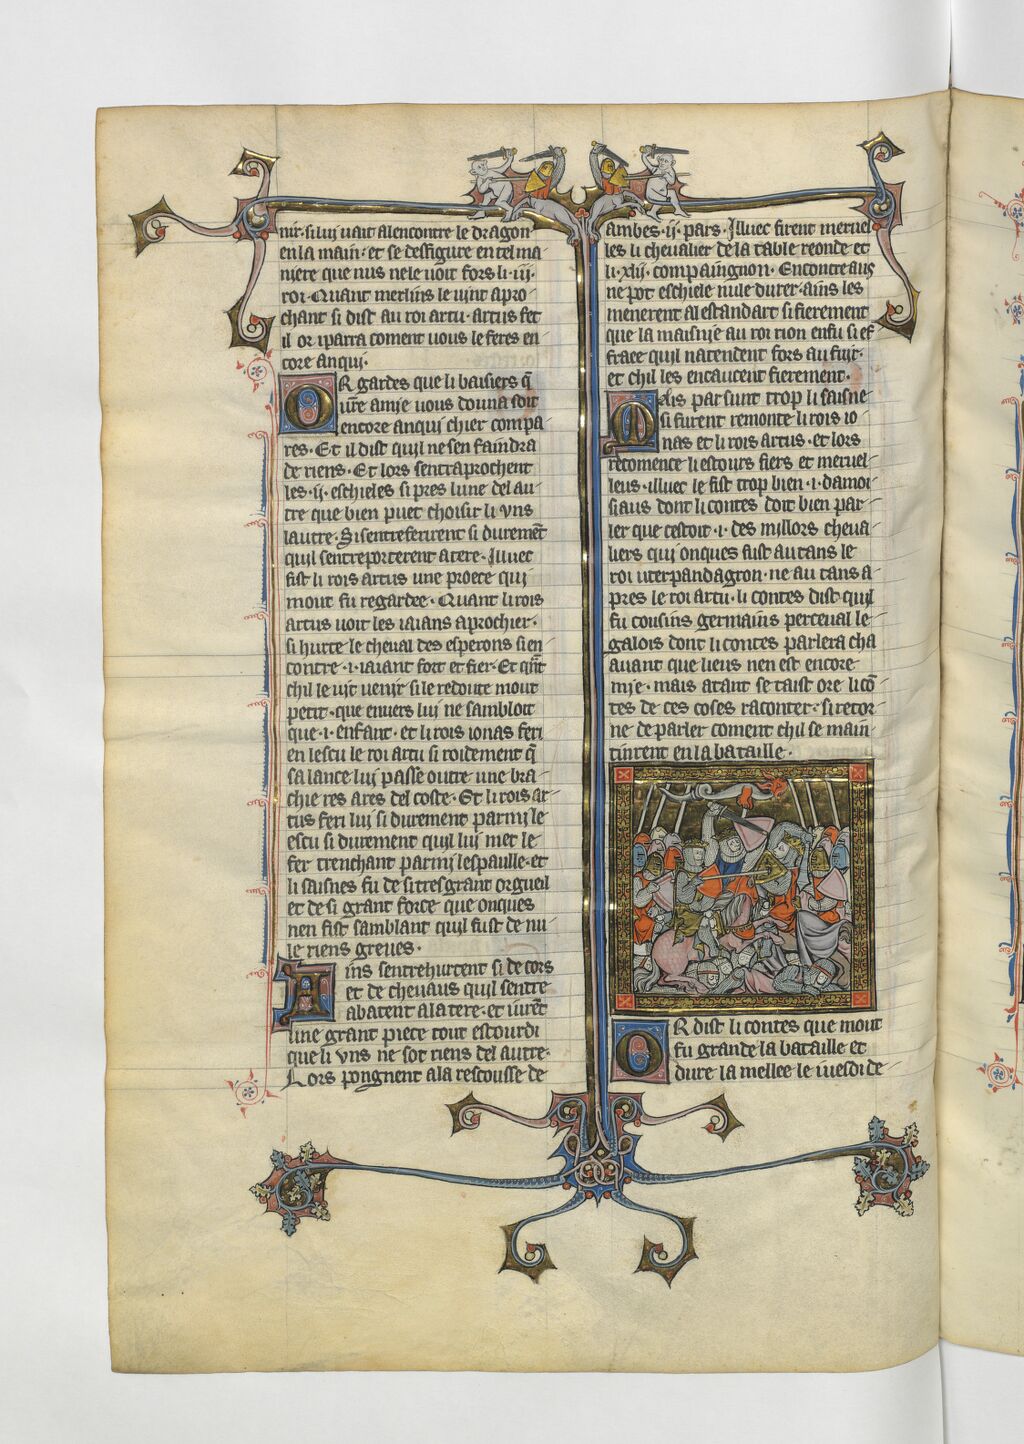 nir· si lui vait alencontre le dragon
en la main· et se desfigure en tel ma
niere que nus nele voit fors li·iii·
roi· Quant merlins le vint apro
chant si dist au roi artu· artus fet
il or iparra coment vous le feres en
core anqui·
OR gardes que li baisiers q̄
vr̄e amie vous donna soit
encore anqui chier compa
res· Et il dist quil ne sen faindra
de riens· Et lors sentraprochent
les·ii·eschieles si pres lune del au
tre que bien puet choisir li vns
lautre· Si sentreferirent si durem̄t
quil sentreporterent a tere· Illuec
fist li rois artus une proece qui
mout fu regardee· Quant li rois
artus voit les iaians aprochier·
si hurte le cheval des esperons si en
contre·i·iaiant fort et fier· Et qn̄t
chil le vit venir si le redoute mout
petit· que envers lui ne sambloit
que·i·enfant· et li rois ionas feri
en lescu le roi artu si roidement q̄
sa lance lui passe outre une bra
chie res a res del coste· Et li rois ar
tus feri lui si durement parmi le
escu si durement quil lui met le
fer trenchant parmi lespaulle· et
li saisnes fu de si tres grant orgueil
et de si grant force que onques
nen fist samblant quil fust de nu
le riens greves·
Ains sentrehurtent si de cors
et de chevaus quil sentre
abatent a la tere· et iurēt
une grant piece tout estourdi
que li vns ne sot riens del autre·
Lors poignent a la rescousse de
ambes·ii·pars· Illuec firent mervel
les li chevalier de la table reonde et
li·xlii·compaingnon· Encontre aus
ne pot eschiele nule durer· ains les
menerent al estandart si fierement
que la maisnie au roi rion en fu si ef
fraee quil natendent fors au fuir·
et chil les encaucent fierement·
Mais par sunt trop li saisne
si furent remonte li rois io
nas et li rois artus· et lors
recomence li estours fiers et mervel
leus· illuec le fist trop bien·i·damoi
siaus dont li contes doit bien par
ler que cestoit·i·des millors cheva
liers qui onques fust au tans le
roi uterpandagron· ne au tans a
pres le roi artu· li contes dist quil
fu cousins germains perceval le
galois dont li contes parlera cha
avant que lieus nen est encore
mie· mais atant se taist ore li cō
tes de ces coses raconter· si retor
ne de parler coment chil se main
tinrent en la bataille·
OR dist li contes que mout
fu grande la bataille et
dure la mellee le iuesdi de